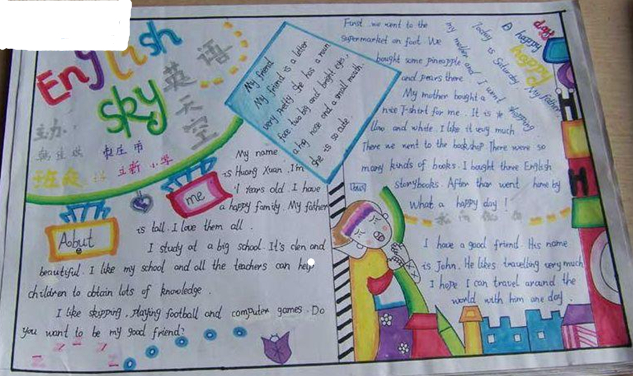 English
sky
英语
天空
My friend
My friend is a letter
very pretty she has a roun
face two big and bright eyes,
a big nose and a small mouth.
She is so cute
About
me
My name
is Huang Xuan. I'm
years old. I have
a happy family. My father
is tall. I love them all.
I study at a big school. It's clen and
beautiful. I like my school and all the teachers can help
children to obtain lots of knowledge.
I like skipping, playing football and computer games. Do
you want to be my good friend?
A happy day!
happy
Today is Saturday. My father
my mother and I went shopping
First we went to the
supermarket on foot. We
bought some pineapple
and pears there
My mother bought a
nice T-shirt for me. It is
llow and white. I like it very much
There we went to the bookshop There were so
many kinds of books. I bought three English
storybooks. After that went home by
What a happy day!
I have a good friend. His name
is John. He likes travelling very much
I hope I can travel around the
world with him one day.
z z z z